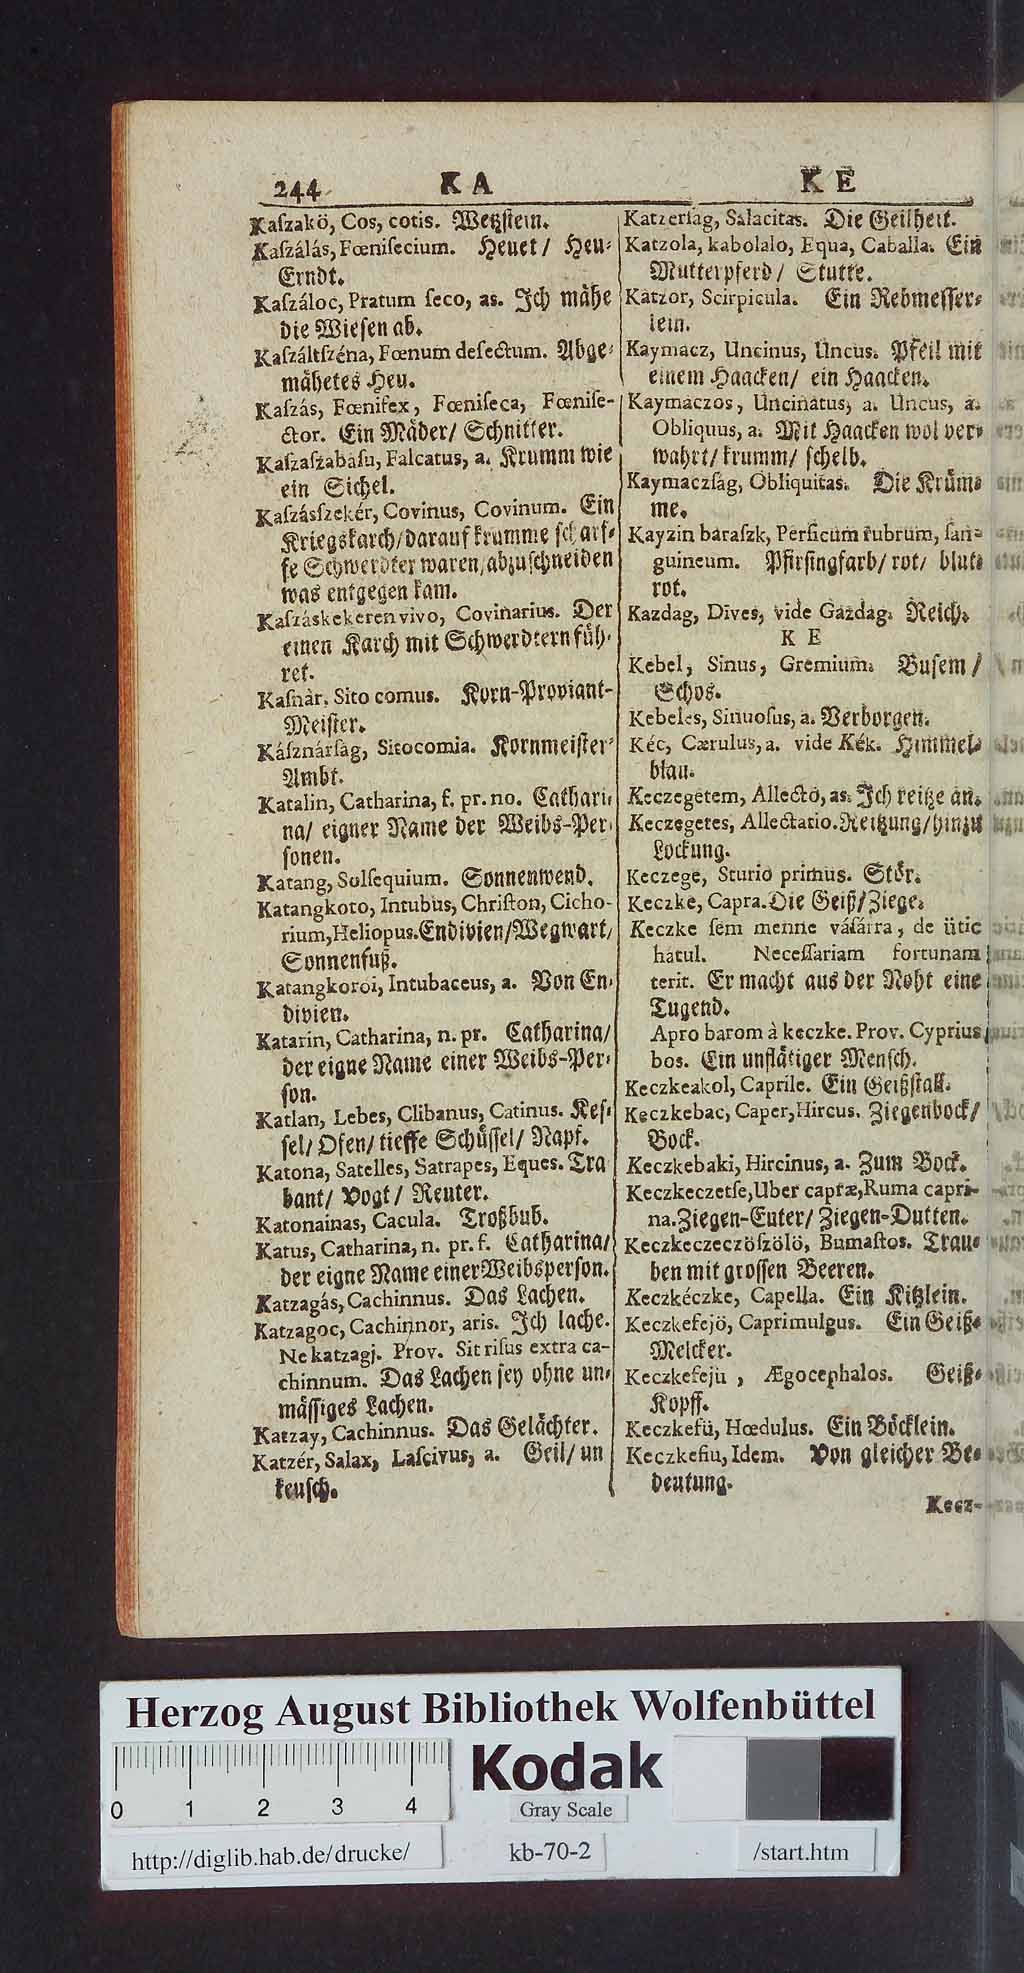 244 K A K E
Kaſzakö, Cos, cotis. Wetzſtein.
Kaſzálás, Fœniſecium. Heuet/ Heu-
Erndt.
Kaſzáloc, Pratum ſeco, as. Ich mähe
die Wieſen ab.
Kaſzáltſzéna, Fœnum deſectum. Abge-
mähetes Heu.
Kaſzás, Fœniſex, Fœniſeca, Fœniſe-
ctor. Ein Mäder/ Schnitter.
Kaſzaſzabáſu, Falcatus, a. Krumm wie
ein Sichel.
Kaſzásſzekér, Covinus, Covinum. Ein
Kriegskarch/ darauf krumme ſcharf-
fe Schwerdter waren/ abzuſchneiden
was entgegen kam.
Kaſzáskekeren vivo, Covinarius. Der
einen Karch mit Schwerdtern füh-
ret.
Kaſnár, Sito comus. Korn-Proviant-
Meiſter.
Káſznárſág, Sitocomia. Kornmeiſter-
Ambt.
Katalin, Catharina, f. pr. no. Cathari-
na/ eigner Name der Weibs-Per-
ſonen.
Katang, Solſequium. Sonnenwend.
Katangkoto, Intubus, Chriſton, Cicho-
rium, Heliopus. Endivien/ Wegwart/
Sonnenfuß.
Katangkoroi, Intubaceus, a. Von En-
divien.
Katarin, Catharina, n. pr. Catharina/
der eigne Name einer Weibs-Per-
ſon.
Katlan, Lebes, Clibanus, Catinus. Keſ-
ſel/ Ofen/ tieffe Schüſſel/ Napf.
Katona, Satelles, Satrapes, Eques. Tra
bant/ Vogt/ Reuter.
Katonainas, Cacula. Troßbub.
Katus, Catharina, n. pr. f. Catharina/
der eigne Name einer Weibsperſon.
Katzagás, Cachinnus. Das Lachen.
Katzagoc, Cachinnor, aris. Ich lache.
Ne katzagj. Prov. Sit riſus extra ca-
chinnum. Das Lachen ſey ohne un-
mäſſiges Lachen.
Katzay, Cachinnus. Das Gelächter.
Katzér, Salax, Laſcivus, a. Geil/ un
keuſch.
Katzerſág, Salacitas. Die Geilheit.
Katzola, kabolalo, Equa, Caballa. Ein
Mutterpferd/ Stutte.
Katzor, Scirpicula. Ein Rebmeſſer-
lein.
Kaymacz, Uncinus, Uncus. Pfeil mit
einem Haacken/ ein Haacken.
Kaymaczos, Uncinatus, a. Uncus, a.
Obliquus, a. Mit Haacken wol ver-
wahrt/ krumm/ ſchelb.
Kaymaczſág, Obliquitas. Die Krüm-
me.
Kayzin baraſzk, Perſicum rubrum, ſan-
guineum. Pfirſingfarb/ rot/ blut-
rot.
Kazdag, Dives, vide Gazdag. Reich.
K E
Kebel, Sinus, Gremium. Buſem/
Schos.
Kebeles, Sinuoſus, a. Verborgen.
Kéc, Cærulus, a. vide Kék. Himmel-
blau.
Keczegetem, Allecto, as. Ich reitze an.
Keczegetes, Allectatio. Reitzung/ hinzu
Lockung.
Keczege, Sturio primus. Stör.
Keczke, Capra. Die Geiß/ Ziege.
Keczke ſem menne váſárra, de ütic
hátul. Neceſſariam fortunam
terit. Er macht aus der Noht eine
Tugend.
Apro barom à keczke. Prov. Cyprius
bos. Ein unflätiger Menſch.
Keczkeakol, Caprile. Ein Geißſtall.
Keczkebac, Caper, Hircus. Ziegenbock/
Bock.
Keczkebaki, Hircinus, a. Zum Bock.
Keczkeczetſe, Uber capræ, Ruma capri-
na. Ziegen-Euter/ Ziegen-Dutten.
Keczkeczeczöſzölö, Bumaſtos. Trau-
ben mit groſſen Beeren.
Keczkéczke, Capella. Ein Kitzlein.
Keczkefejö, Caprimulgus. Ein Geiß-
Melcker.
Keczkefejü, Ægocephalos. Geiß-
Kopff.
Keczkefü, Hœdulus. Ein Böcklein.
Keczkefiu, Idem. Von gleicher Be-
deutung.
Kecz-
Herzog August Bibliothek Wolfenbüttel
0 1 2 3 4
Kodak
Gray Scale
http://diglib.hab.de/drucke/ kb-70-2 /start.htm